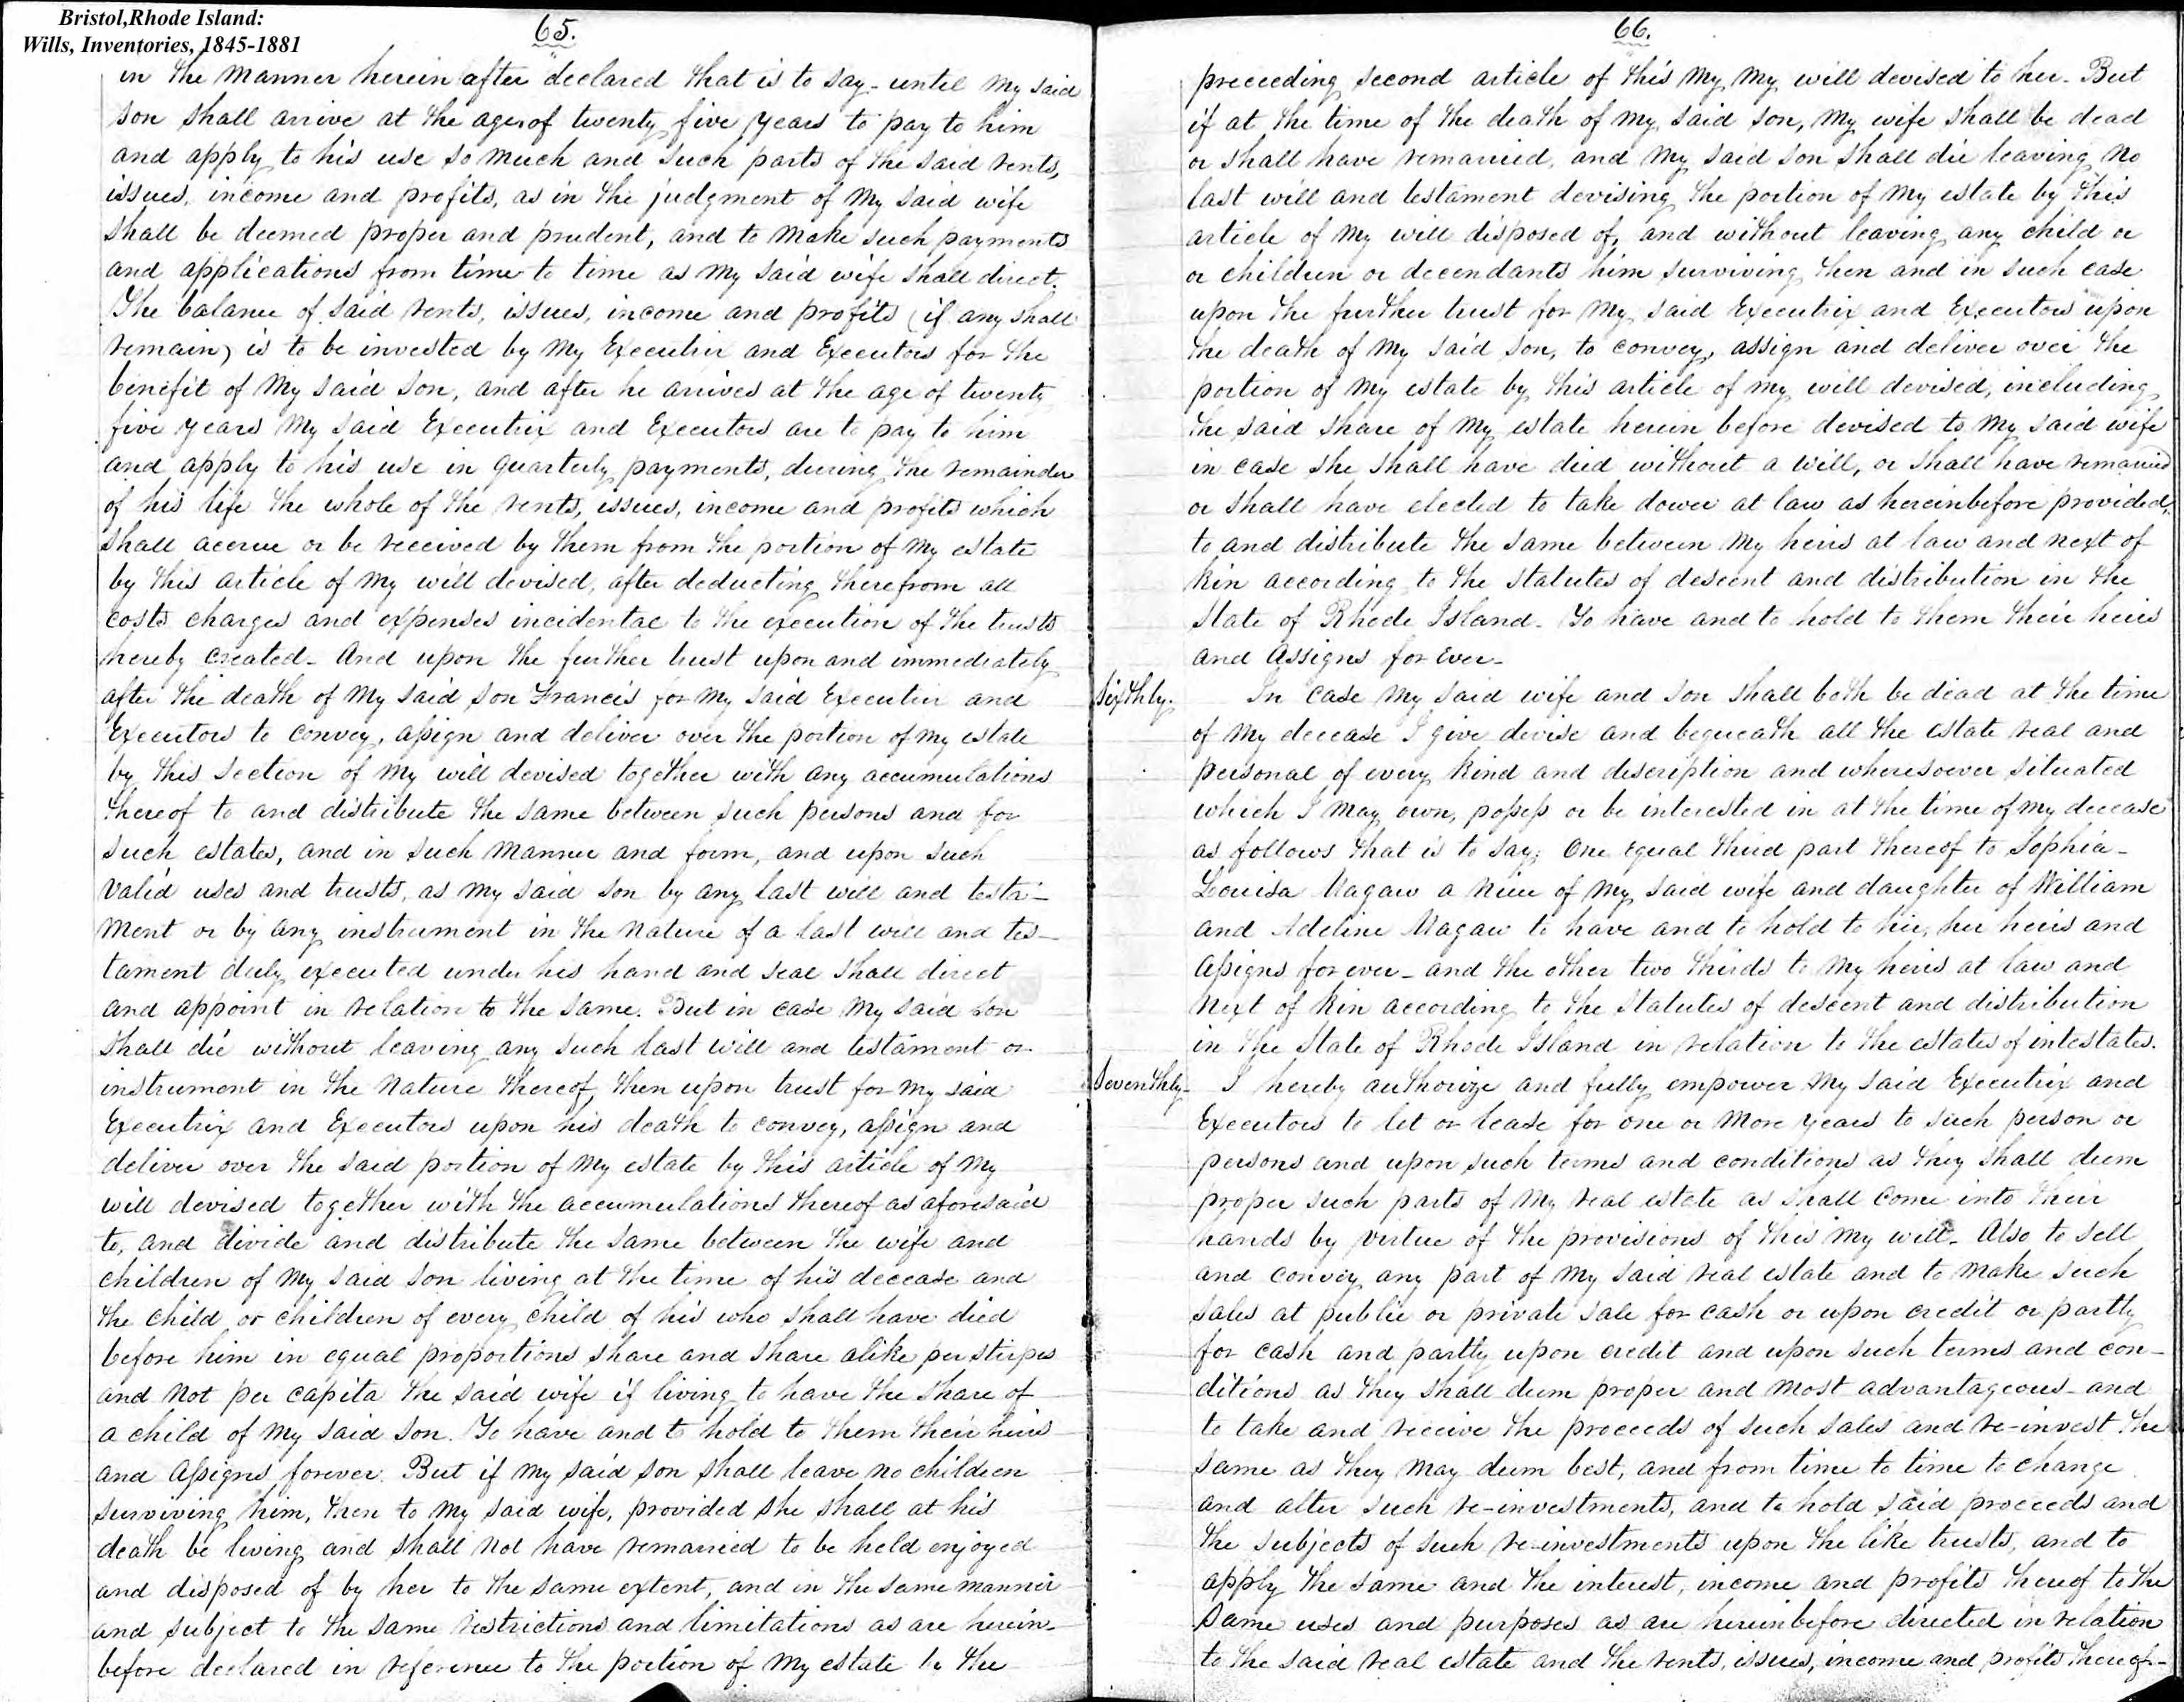 Bristol,Rhode Island:
Wills, Inventories, 1845-1881
65.
in the manner herein after declared that is to say - until my said
son shall arrive at the age of twenty five years to pay to him
and apply to his use so much and such parts of the said rents,
issues, income and profits, as in the judgment of my said wife
shall be deemed proper and prudent, and to make such payments
and applications from time to time as my said wife shall direct.
The balance of said rents, issues, income and profits (if any shall
remain) is to be invested by my Executrix and Executors for the
benefit of my said son, and after he arrives at the age of twenty
five years my said Executrix and Executors are to pay to him
and apply to his use in quarterly payments, during the remainder
of his life the whole of the rents, issues, income and profits which
shall accrue or be received by them from the portion of my estate
by this article of my will devised, after deducting therefrom all
costs charges and expenses incidental to the execution of the trusts
hereby created - And upon the further trust upon and immediately
after the death of my said son Francis for my said Executrix and
Executors to convey, assign and deliver over the portion of my estate
by this section of my will devised together with any accumulations
thereof to and distribute the same between such persons and for
such estates, and in such manner and form, and upon such
valid uses and trusts, as my said son by any last will and testa-
ment or by any instrument in the nature of a last will and tes-
tament duly executed under his hand and seal shall direct
and appoint in relation to the same. But in case my said son
shall die without leaving any such last will and testament or
instrument in the nature thereof, then upon trust for my said
Executrix and Executors upon his death to convey, assign and
deliver over the said portion of my estate by this article of my
will devised together with the accumulations thereof as aforesaid
to, and divide and distribute the same between the wife and
children of my said son living at the time of his decease and
the child or children of every child of his who shall have died
before him in equal proportions share and share alike per stirpes
and not per capita the said wife if living to have the share of
a child of my said son. To have and to hold to them their heirs
and assigns forever. But if my said son shall leave no children
surviving him, then to my said wife, provided she shall at his
death be living and shall not have remarried to be held enjoyed
and disposed of by her to the same extent, and in the same manner
and subject to the same restrictions and limitations as are herein-
before declared in reference to the portion of my estate by the
66.
preceeding second article of this my, my will devised to her. But
if at the time of the death of my said son, my wife shall be dead
or shall have remarried, and my said son shall die leaving no
last will and testament devising the portion of my estate by this
article of my will disposed of, and without leaving any child or
or children or decendants him surviving then and in such case
upon the further trust for my said Executrix and Executors upon
the death of my said son, to convey, assign and deliver over the
portion of my estate by this article of my will devised, including
the said share of my estate herein before devised to my said wife
in case she shall have died without a will, or shall have remarried
or shall have elected to take dower at law as hereinbefore provided,
to and distribute the same between my heirs at law and next of
kin according to the statutes of descent and distribution in the
State of Rhode Island. To have and to hold to them their heirs
and assigns for ever -
Sixthly. In case my said wife and son shall both be dead at the time
of my decease I give devise and bequeath all the estate real and
personal of every kind and description and wheresoever situated
which I may own, possess or be interested in at the time of my decease
as follows that is to say; One equal third part thereof to Sophia -
Louisa Magaw a niece of my said wife and daughter of William
and Adeline Magaw to have and to hold to her, her heirs and
assigns for ever - and the other two thirds to my heirs at law and
next of kin according to the statutes of descent and distribution
in the State of Rhode Island in relation to the estates of intestates.
Seventhly - I hereby authorize and fully empower my said Executrix and
Executors to let or lease for one or more years to such person or
persons and upon such terms and conditions as they shall deem
proper such parts of my real estate as shall come into their
hands by virtue of the provisions of this my will. Also to sell
and convey any part of my said real estate and to make such
sales at public or private sale for cash or upon credit or partly
for cash and partly upon credit and upon such terms and con-
ditions as they shall deem proper and most advantageous - and
to take and receive the proceeds of such sales and re-invest the
same as they may deem best, and from time to time to change
and alter such re-investments, and to hold said proceeds and
the subjects of such re-investments upon the like trusts, and to
apply the same and the interest, income and profits thereof to the
same uses and purposes as are hereinbefore directed in relation
to the said real estate and the rents, issues, income and profits thereof -